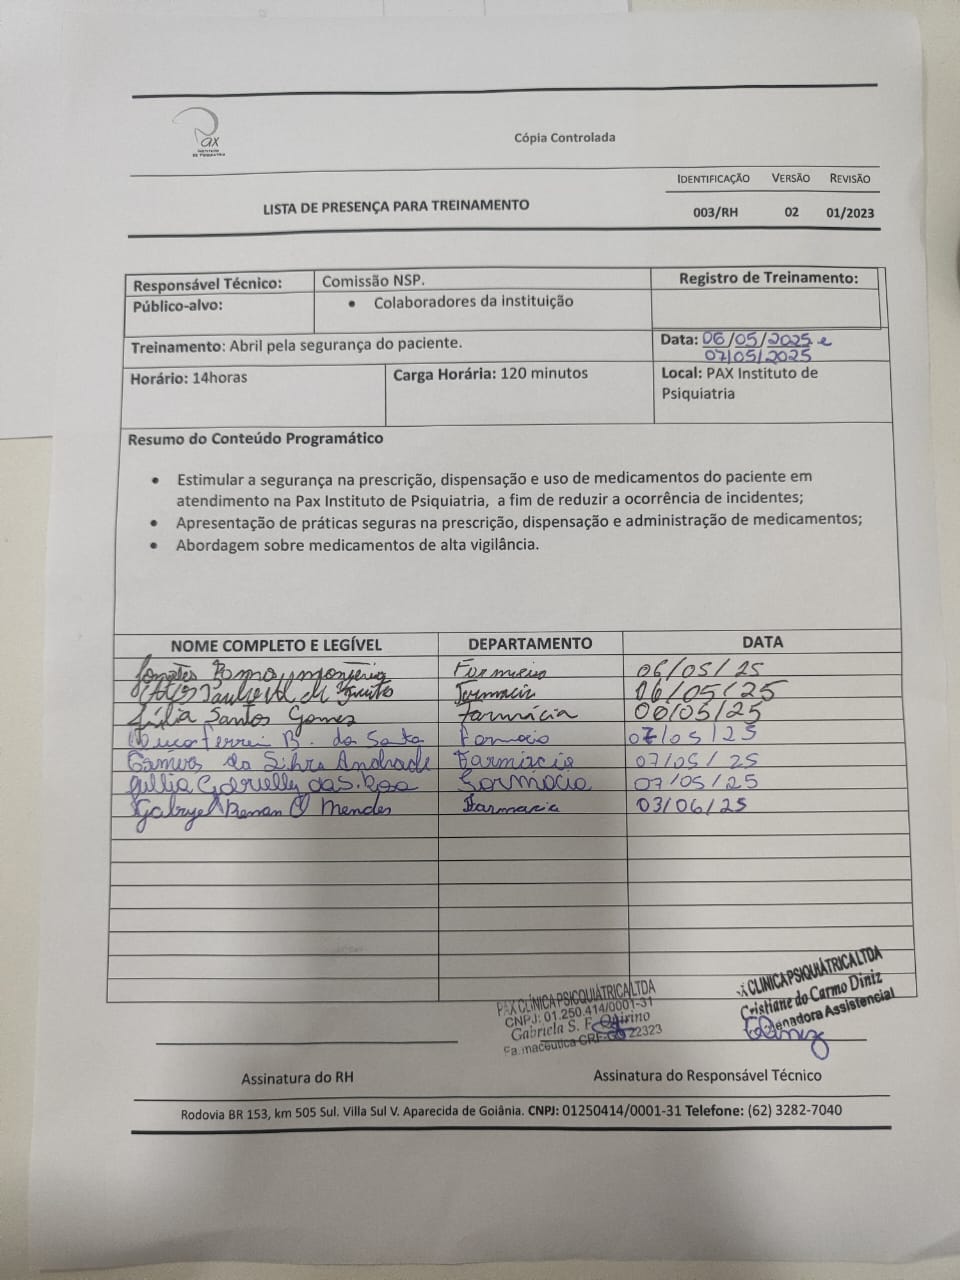 Pax
INSTITUTO
DE PSIQUIATRIA
Cópia Controlada
LISTA DE PRESENÇA PARA TREINAMENTO
IDENTIFICAÇÃO VERSÃO REVISÃO
003/RH 02 01/2023
Responsável Técnico: Comissão NSP. Registro de Treinamento:
Público-alvo: • Colaboradores da instituição
Treinamento: Abril pela segurança do paciente. Data: 06/05/2025 e
07/05/2025
Horário: 14horas Carga Horária: 120 minutos Local: PAX Instituto de
Psiquiatria
Resumo do Conteúdo Programático
• Estimular a segurança na prescrição, dispensação e uso de medicamentos do paciente em
atendimento na Pax Instituto de Psiquiatria, a fim de reduzir a ocorrência de incidentes;
• Apresentação de práticas seguras na prescrição, dispensação e administração de medicamentos;
• Abordagem sobre medicamentos de alta vigilância.
NOME COMPLETO E LEGÍVEL DEPARTAMENTO DATA
06/05/25
06/05/25
Júlia Santos Gomez Farmácia 06/05/25
Ferrei B. da Costa 07/05/25
da Silva Andrade Farmácia 07/05/25
Gabrielly das 07/05/25
Gabryel Renan O Mendes Farmacia 03/06/25
PAX CLÍNICA PSICQUIÁTRICA LTDA
CNPJ: 01.250.414/0001-31
Gabriela S. F. Quirino
Farmacêutica CRF-GO 22323
CLINICA PSIQUIÁTRICA LTDA
Cristiane do Carmo Diniz
Assistencial
Assinatura do RH Assinatura do Responsável Técnico
Rodovia BR 153, km 505 Sul. Villa Sul V. Aparecida de Goiânia. CNPJ: 01250414/0001-31 Telefone: (62) 3282-7040